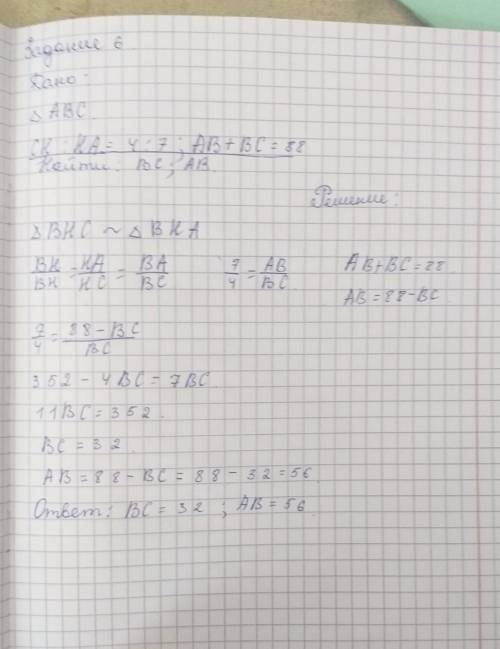 Задание 6
Дано:
△ABC.
CK : KA = 4 : 7 ; AB + BC = 88
Найти: BC; AB.
Решение:
△BHC ~ △BHA
BH/BH = HA/HC = BA/BC 7/4 = AB/BC AB+BC=88
AB=88-BC
7/4 = 88-BC/BC
352 - 4BC = 7BC
11BC = 352.
BC = 32.
AB = 88 - BC = 88 - 32 = 56.
Ответ: BC = 32 ; AB = 56